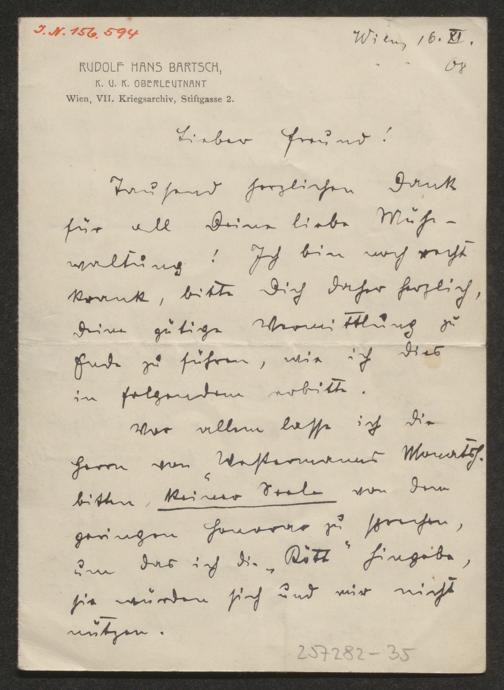 J.N. 156.594
Wien, 16. XI.
08
RUDOLF HANS BARTSCH,
K. U. K. OBERLEUTNANT
Wien, VII. Kriegsarchiv, Stiftgasse 2.
Lieber Freund!
Tausend herzlichen Dank
für all Deine liebe Mühe-
waltung! Ich bin noch recht
krank, bitte Dich daher herzlich,
Deine gütige Vermittlung zu
Ende zu führen, wie ich dies
in folgendem erbitte.
Vor allem lasse ich die
Herrn von "Westermanns Monatsh.
bitten, keiner Seele von dem
geringen Honorar zu sprechen,
um das ich die „Rött" hingebe,
sie würden sich und mir nicht
nützen.
257282-35